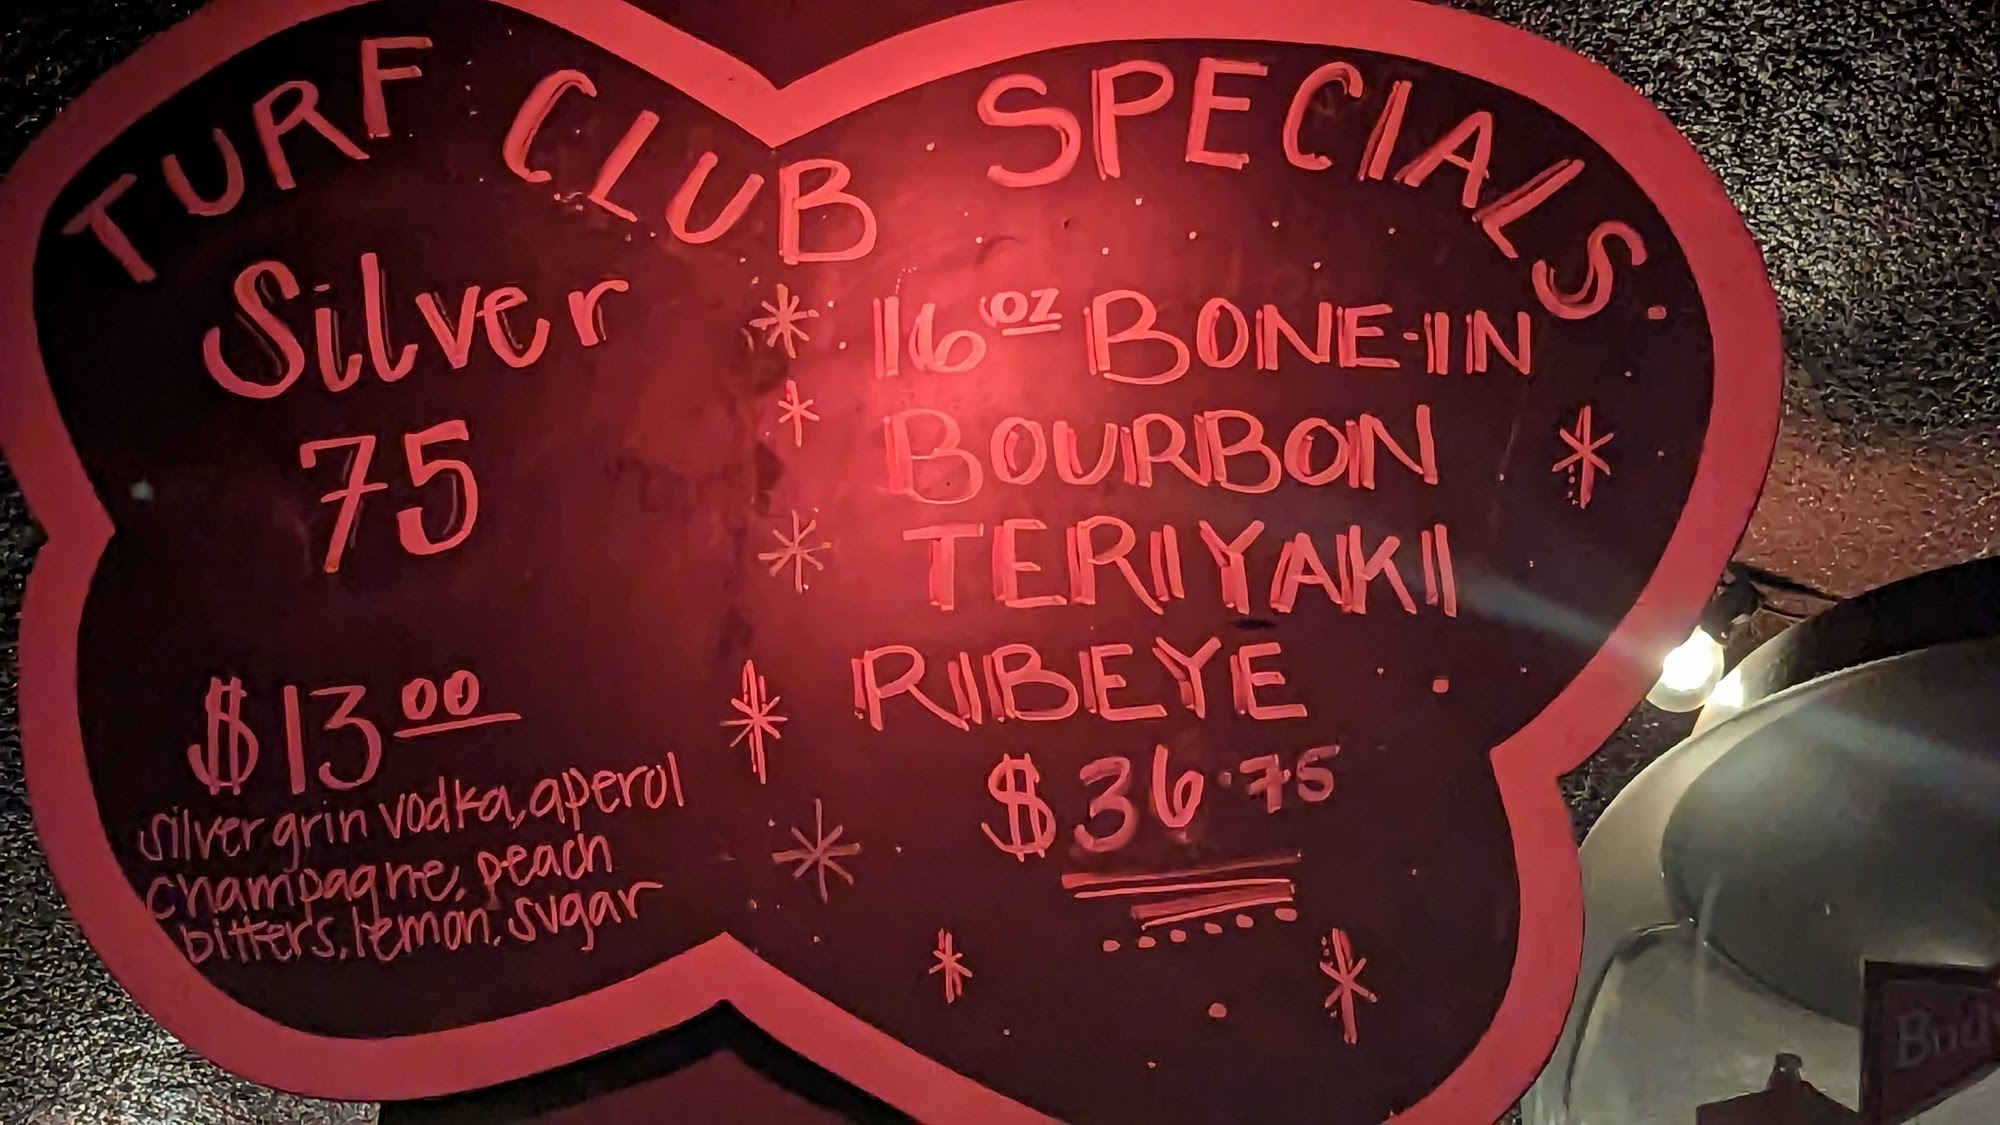 TURF CLUB SPECIALS
Silver
75
$13.00
silver grin vodka, aperol
champagne, peach
bitters, lemon, sugar
16oz BONE-IN
BOURBON
TERIYAKI
RIBEYE
$36.75